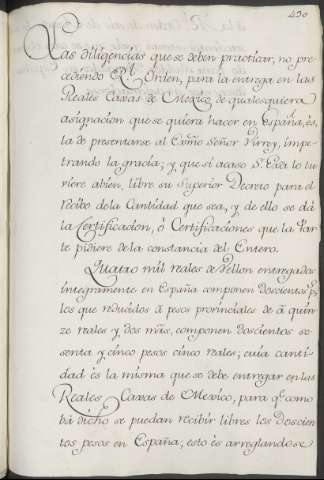 450
Las diligencias que se deben practicar, no pre-
cediendo Rl. Orden, para la entrega en las
Reales Caxas de Mexico de qualesquiera
asignacion que se quiera hacer en España, és
ta de presentarse al Exmo. Señor Virrey, impe-
trando la gracia; y que si acaso S. Exa. lo tu-
viere abien, libre su Superior Decreto para el
recibo de la Cantidad que sea, y de ello se dá
la Certificacion, ó Certificaciones que la Par-
te pidiere de la constancia del Entero.
Quatro mil reales de Vellon entregados
integramente en España componen doscientos ps.
los que reducidos á pesos provinciales de á quin-
ze reales y dos mrs. componen doscientos se-
senta y cinco pesos cinco reales; cuia canti-
dad és la misma que se debe entregar en las
Reales Caxas de Mexico, para qe. como
bá dicho se puedan recibir libres los Doscien-
tos pesos en España; esto és arreglandose